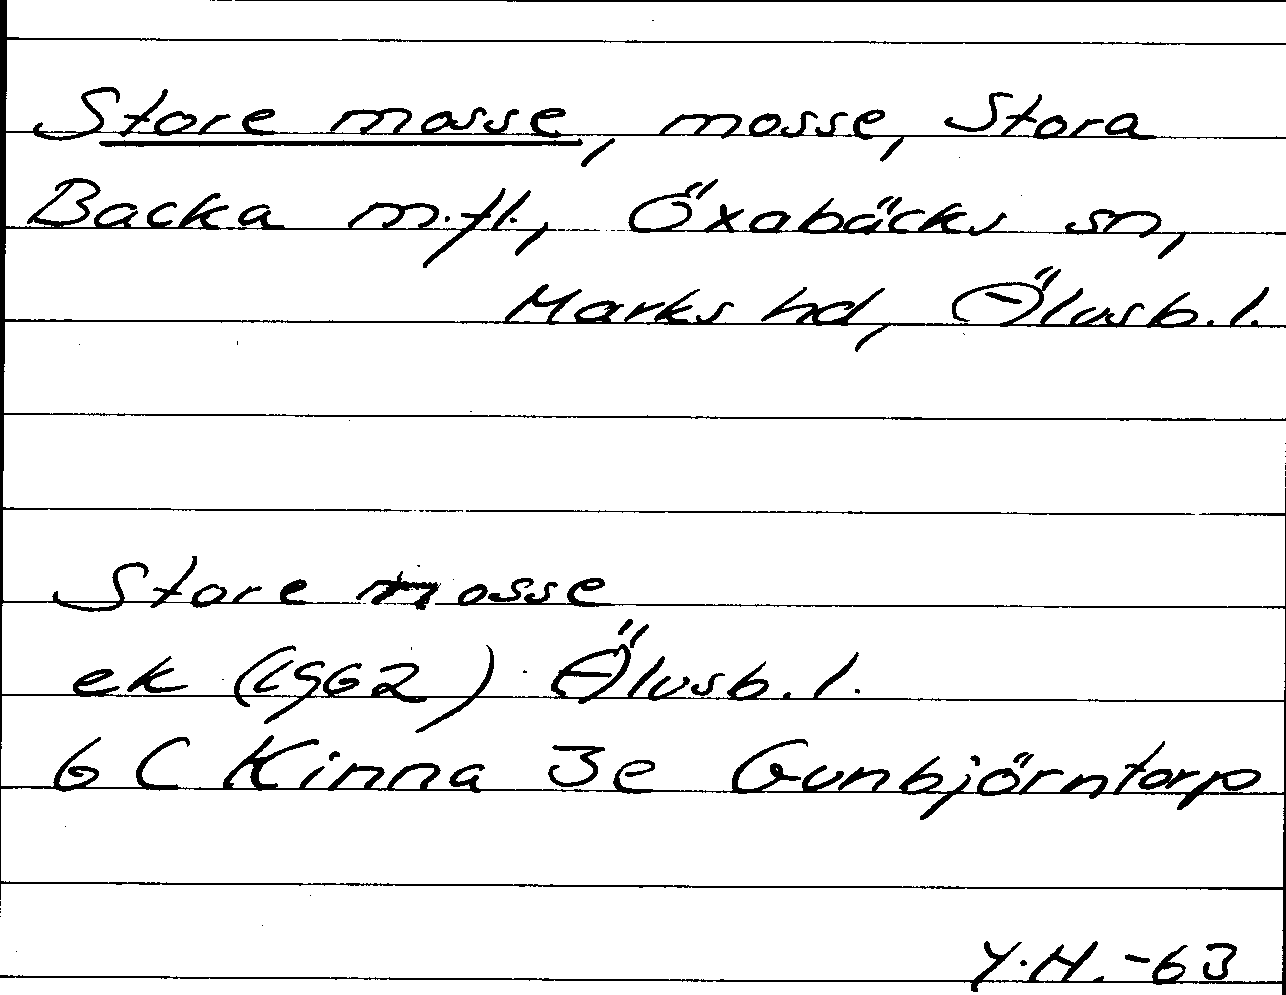 Store mosse, mosse, Stora
Backa m.fl., Öxabäcks sn,
Marks hd, Älvsb. l.
Store mosse
ek (1962) Älvsb. l.
6 C Kinna 3e Gunbjörntorp
Y.H. -63